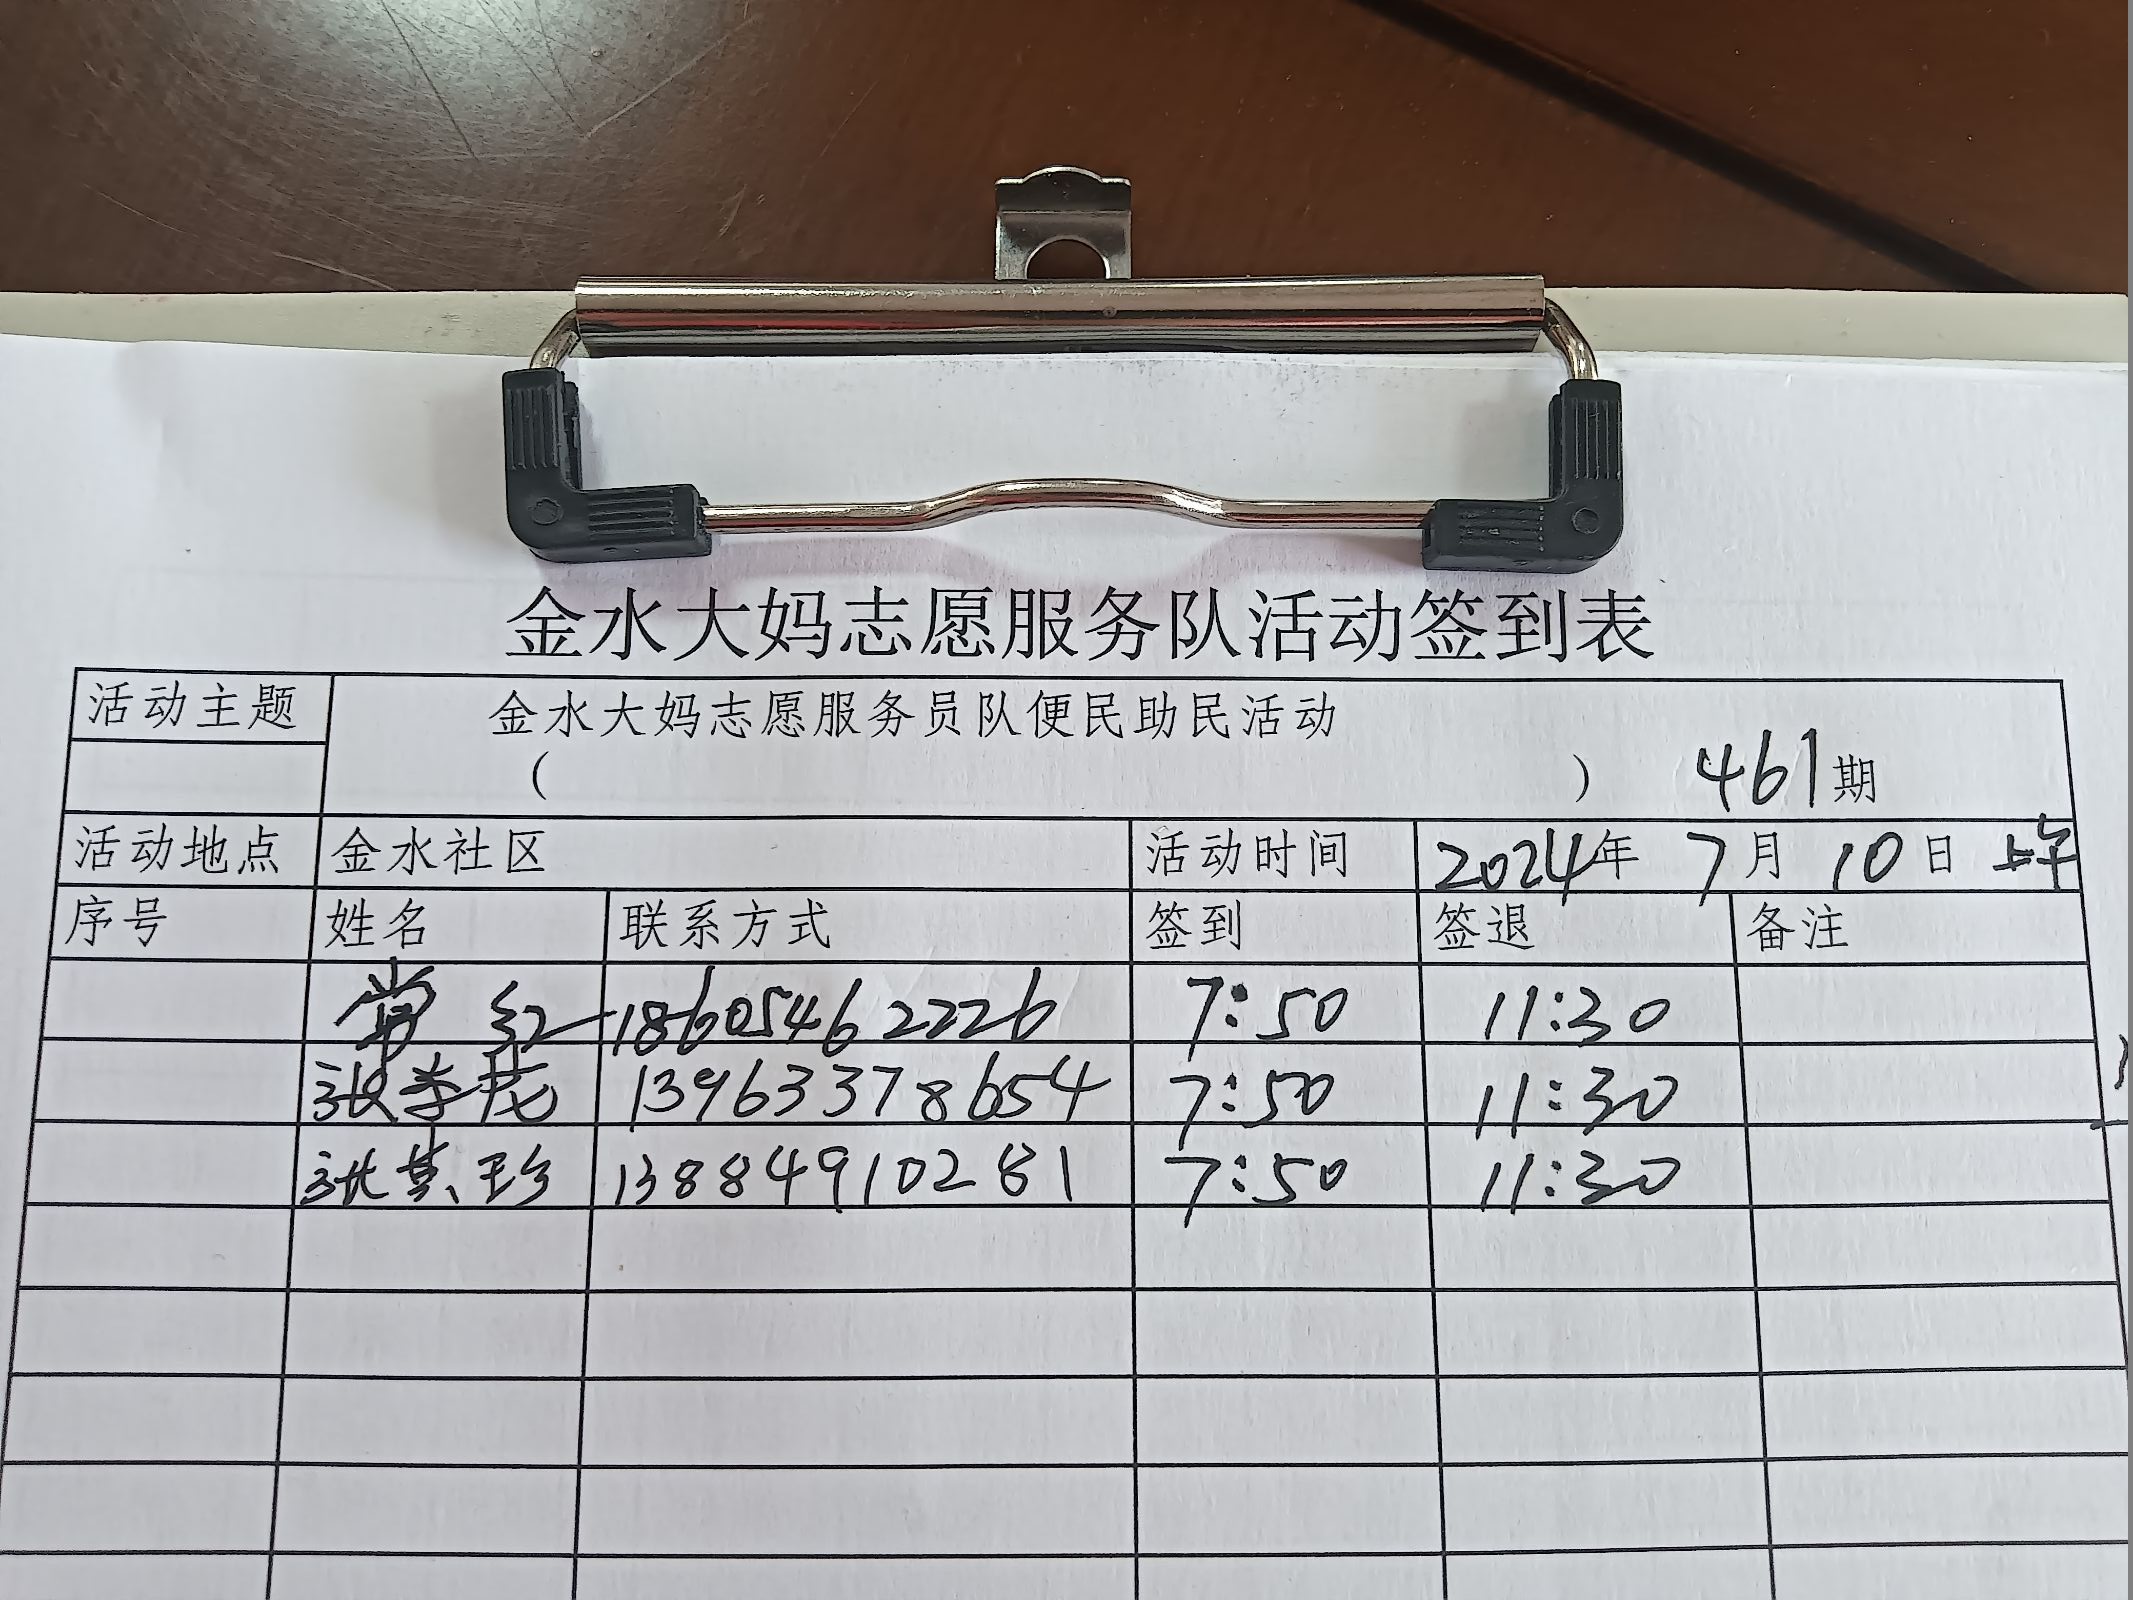 金水大妈志愿服务队活动签到表
活动主题 金水大妈志愿服务员队便民助民活动
( ) 461期
活动地点 金水社区 活动时间 2024年 7月 10日 上午
序号 姓名 联系方式 签到 签退 备注
常红 18605462226 7:50 11:30
张学花 13963378654 7:50 11:30
张其珍 13884910281 7:50 11:30